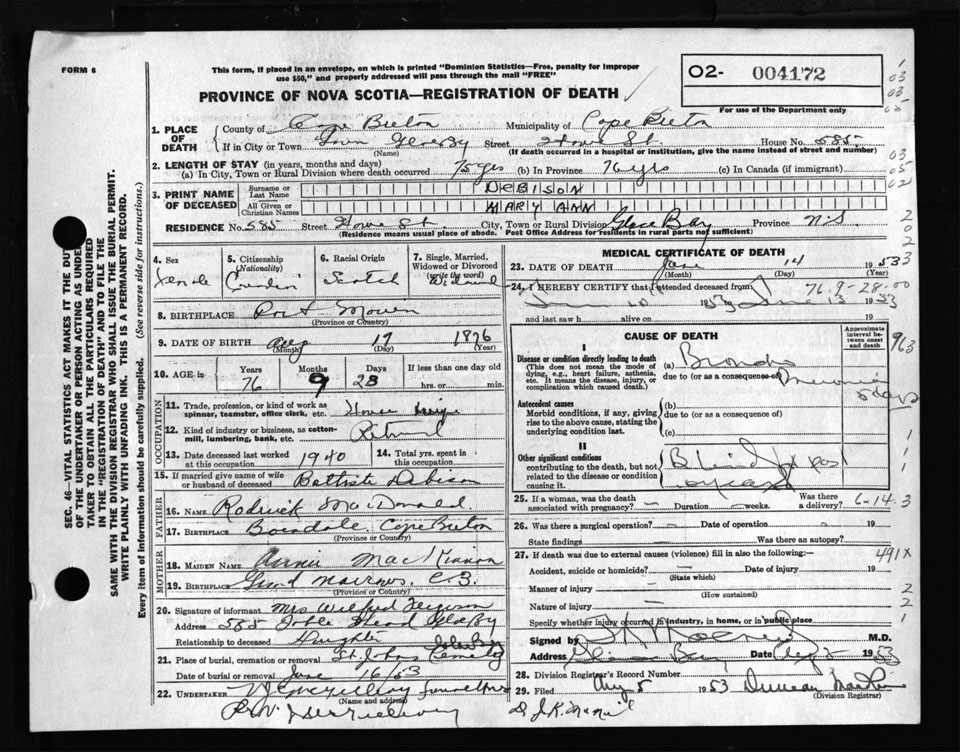 FORM 6
This form, if placed in an envelope, on which is printed "Dominion Statistics—Free, penalty for improper
use $50," and properly addressed will pass through the mail "FREE"
O2- 004172
For use of the Department only
PROVINCE OF NOVA SCOTIA—REGISTRATION OF DEATH
SEC. 46—VITAL STATISTICS ACT MAKES IT THE DUTY
OF THE UNDERTAKER OR PERSON ACTING AS UNDER
TAKER TO OBTAIN ALL THE PARTICULARS REQUIRED
IN THE "REGISTRATION OF DEATH" AND TO FILE THE
SAME WITH THE DIVISION REGISTRAR WHO SHALL ISSUE THE BURIAL PERMIT.
WRITE PLAINLY WITH UNFADING INK. THIS IS A PERMANENT RECORD.
Every item of information should be carefully supplied. (See reverse side for instructions.)
1. PLACE OF DEATH County of Cape Breton Municipality of Cape Breton
If in City or Town Street St. House No. 585
(Name) (If death occurred in a hospital or institution, give the name instead of street and number)
2. LENGTH OF STAY (in years, months and days)
(a) In City, Town or Rural Division where death occurred 75 yrs (b) In Province 76 yrs (c) In Canada (if immigrant)
3. PRINT NAME OF DECEASED Surname or Last Name DEBISON
All Given or Christian Names MARY ANN
RESIDENCE No. 585 Street St City, Town or Rural Division Glace Bay Province N.S
(Residence means usual place of abode. Post Office Address for residents in rural parts not sufficient)
4. Sex Female
5. Citizenship (Nationality) Canadian
6. Racial Origin Scotch
7. Single, Married, Widowed or Divorced (write the word) Widowed
8. BIRTHPLACE Port Morien
(Province or Country)
9. DATE OF BIRTH Aug 17 1876
(Month) (Day) (Year)
10. AGE in Years Months Days If less than one day old
76 9 28 hrs. or min.
OCCUPATION
11. Trade, profession, or kind of work as spinner, teamster, office clerk, etc.
12. Kind of industry or business, as cotton-mill, lumbering, bank, etc. Retired
13. Date deceased last worked at this occupation 1940
14. Total yrs. spent in this occupation
15. If married give name of wife or husband of deceased Battiste Debison
FATHER
16. NAME Roderick MacDonald
17. BIRTHPLACE Boisdale, Cape Breton
(Province or Country)
MOTHER
18. MAIDEN NAME Annie MacKinnon
19. BIRTHPLACE C.B.
(Province or Country)
20. Signature of informant Mrs Wilfred Ferguson
Address 585 Table Head Glace Bay
Relationship to deceased Daughter
21. Place of burial, cremation or removal St. Johns Cemetery
Date of burial or removal June 16/53
22. UNDERTAKER
(Name and address)
MEDICAL CERTIFICATE OF DEATH
23. DATE OF DEATH June 14 1953
(Month) (Day) (Year)
24. I HEREBY CERTIFY that I attended deceased from:
76.9-28.00
June 10 1953 June 13 1953
and last saw h alive on 19
CAUSE OF DEATH
Approximate interval between onset and death
I
Disease or condition directly leading to death
(This does not mean the mode of dying, e.g., heart failure, asthenia, etc. It means the disease, injury, or complication which caused death.)
(a) Broncho
due to (or as a consequence of) Pneumonia
5 days
Antecedent causes
Morbid conditions, if any, giving rise to the above cause, stating the underlying condition last.
(b)
due to (or as a consequence of)
(c)
II
Other significant conditions
contributing to the death, but not related to the disease or condition causing it.
Blind years
25. If a woman, was the death associated with pregnancy? — Duration — weeks. Was there a delivery?
6-14.3
26. Was there a surgical operation? — Date of operation 19
State findings Was there an autopsy?
27. If death was due to external causes (violence) fill in also the following:—
491X
Accident, suicide or homicide? — Date of injury 19
(State which)
Manner of injury
(How sustained)
Nature of injury —
Specify whether injury occurred in industry, in home, or in public place
Signed by M.D.
Address Glace Bay Date 1953
28. Division Registrar's Record Number
29. Filed Aug 5 1953 Duncan
(Division Registrar)